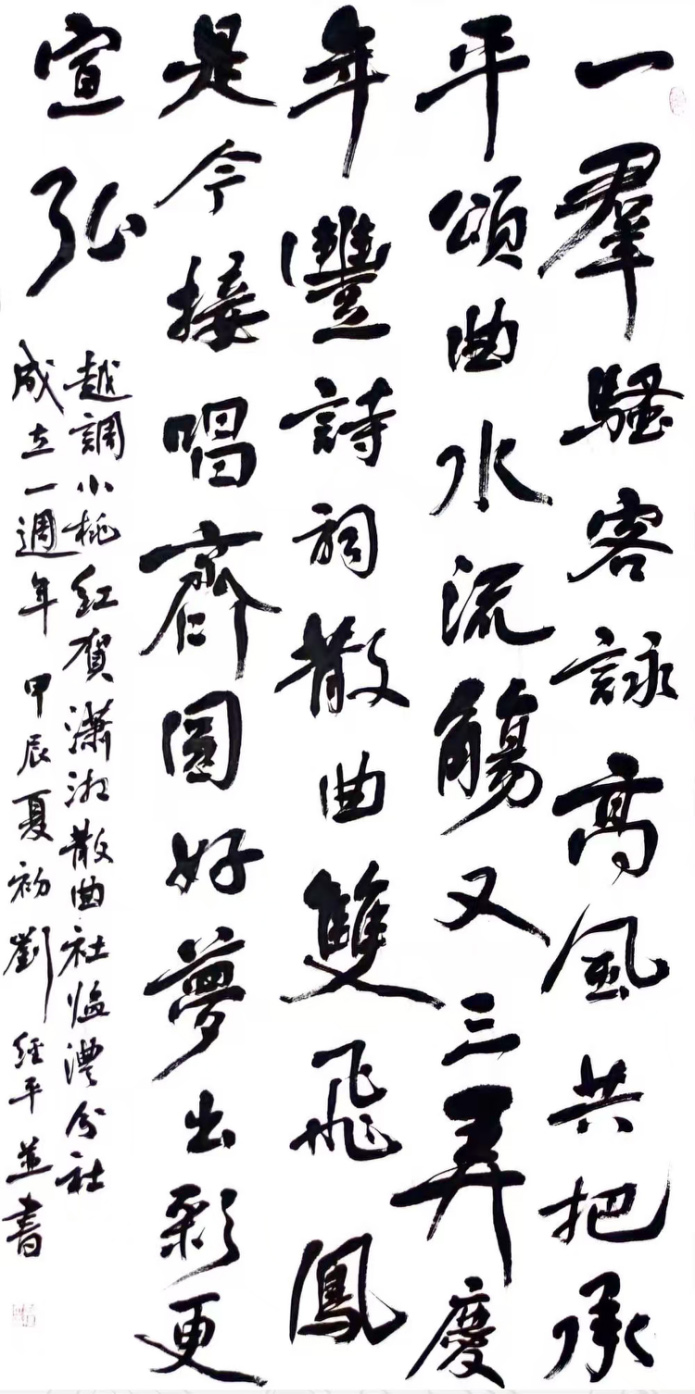 一羣騷客詠高風共把承
平頌曲水流觴又三弄慶
年豐詩詞散曲雙飛鳳
是今接唱齊圓好夢出彩更
宣弘
越調小桃紅賀瀟湘散曲社臨澧分社
成立一週年甲辰夏初劉經平並書